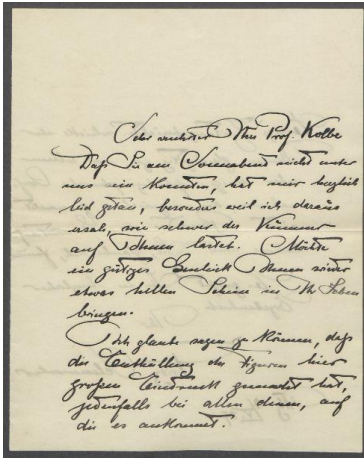 Sehr verehrter Herr Prof. Kolbe
Daß Sie am Sonnabend nicht unter
uns sein konnten, hat mir herzlich
leid getan, besonders weil ich daraus
ersah, wie schwer der Kummer
auf Ihnen lastet. Möchte
ein gütiges Geschick Ihnen wieder
etwas hellen Schein in Ihr Leben
bringen.
Ich glaube sagen zu können, daß
die Enthüllung der Figuren hier
großen Eindruck gemacht hat,
jedenfalls bei allen denen, auf
die es ankommt.